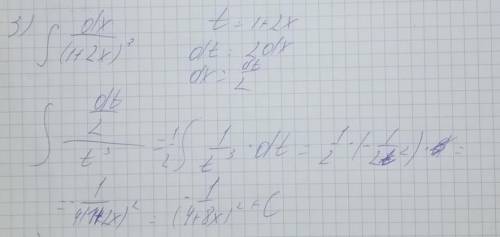 3) ∫ dx/(1+2x)³   t = 1+2x
dt = 2dx
dx = dt/2
∫ (dt/2)/t³ = 1/2 ∫ 1/t³ · dt = 1/2 · (-1/(2t²)) · =
= -1/(4(1+2x)²) = -1/(4+8x)² + C